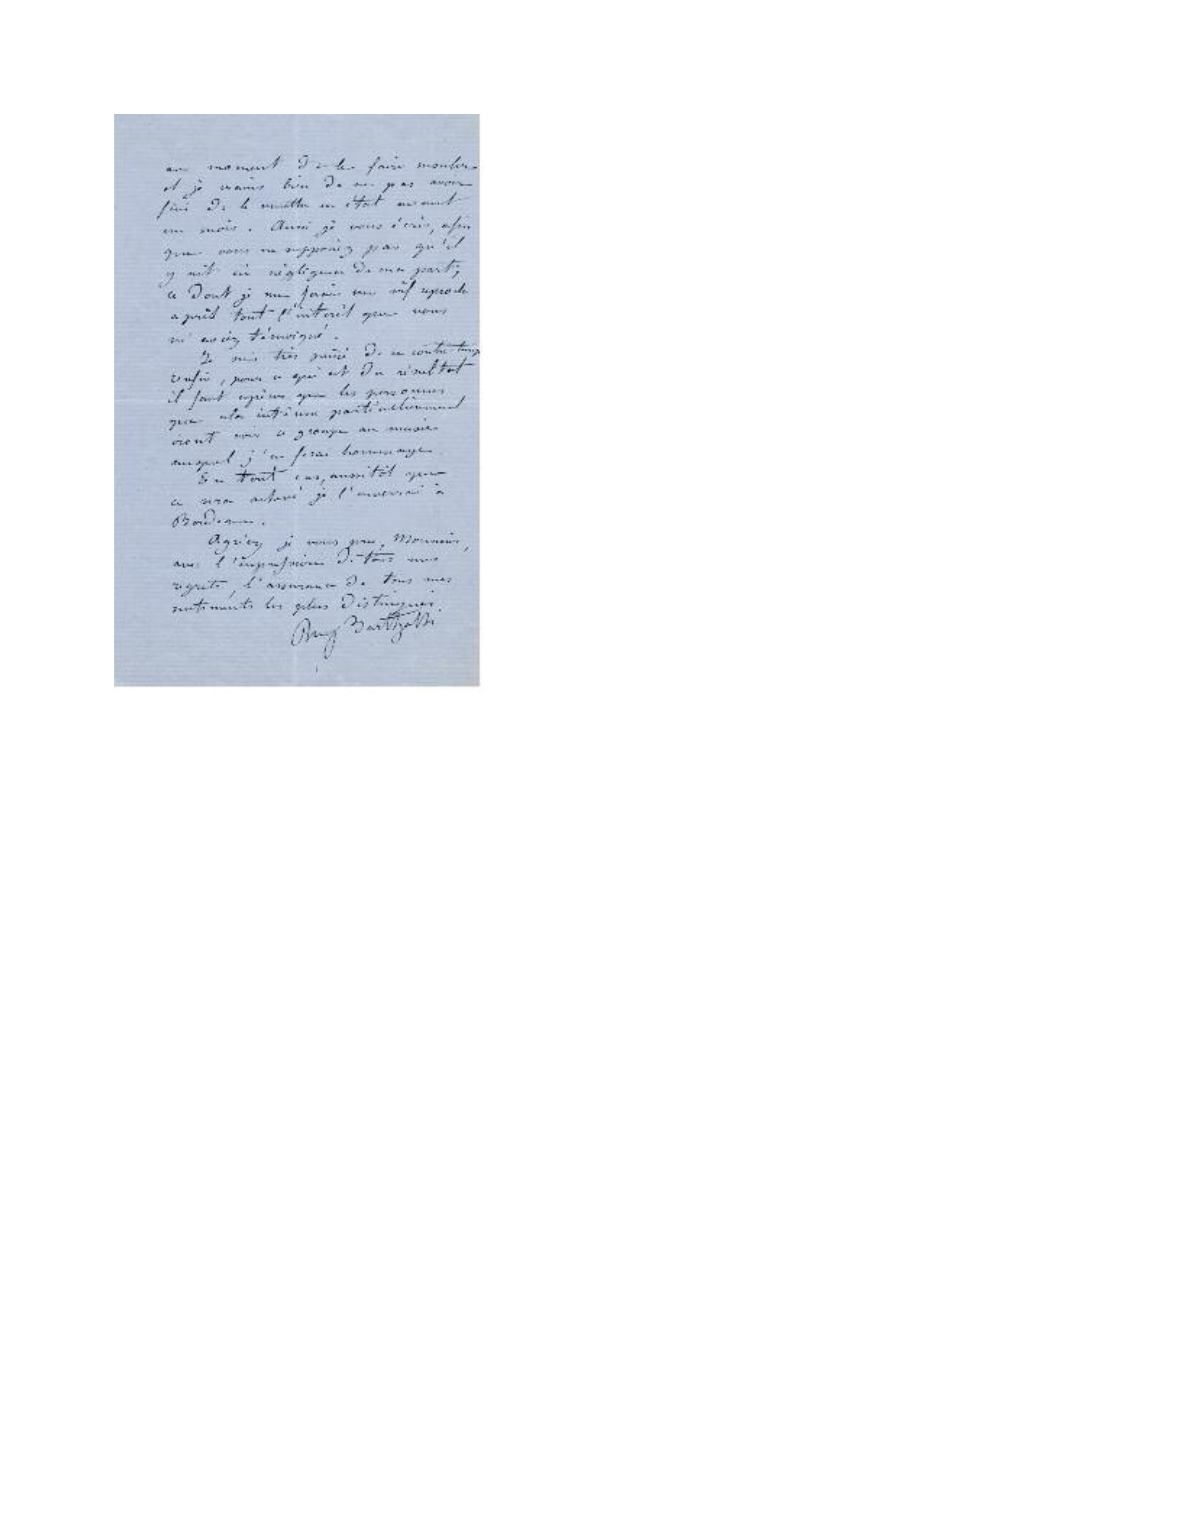 au moment de le faire mouler
et je crains bien de ne pas avoir
fini de le mettre en état avant
un mois. Aussi je vous écris, afin
que vous ne supposiez pas qu'il
y ait eu négligence de ma part,
ce dont je me ferais un vif reproche
après tout l'interêt que vous
m'avéz témoigné.
Je suis très peiné de ce contre temps
enfin, pour ce qui est du résultat
il faut espérer que les personnes
que cela intéresse particulièrement
iront voir ce groupe au musée
auquel j'en ferai hommage.
En tout cas, aussitôt que
ce sera achevé je l'enverrai à
Bordeaux.
Agréez je vous prie, Monsieur,
avec l'expression de tous mes
regrets, l'assurance de tous mes
sentiments les plus distingués.
Bartholdi